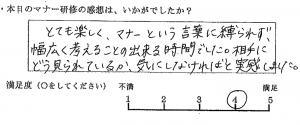 ・本日のマナー研修の感想は、いかがでしたか?
とても楽しく、マナーという言葉に縛られず、
幅広く考えることの出来る時間でした。相手に
どう見られているか、気にしなければと実感しました。
満足度(○をしてください) 不満 満足
1 2 3 4 5